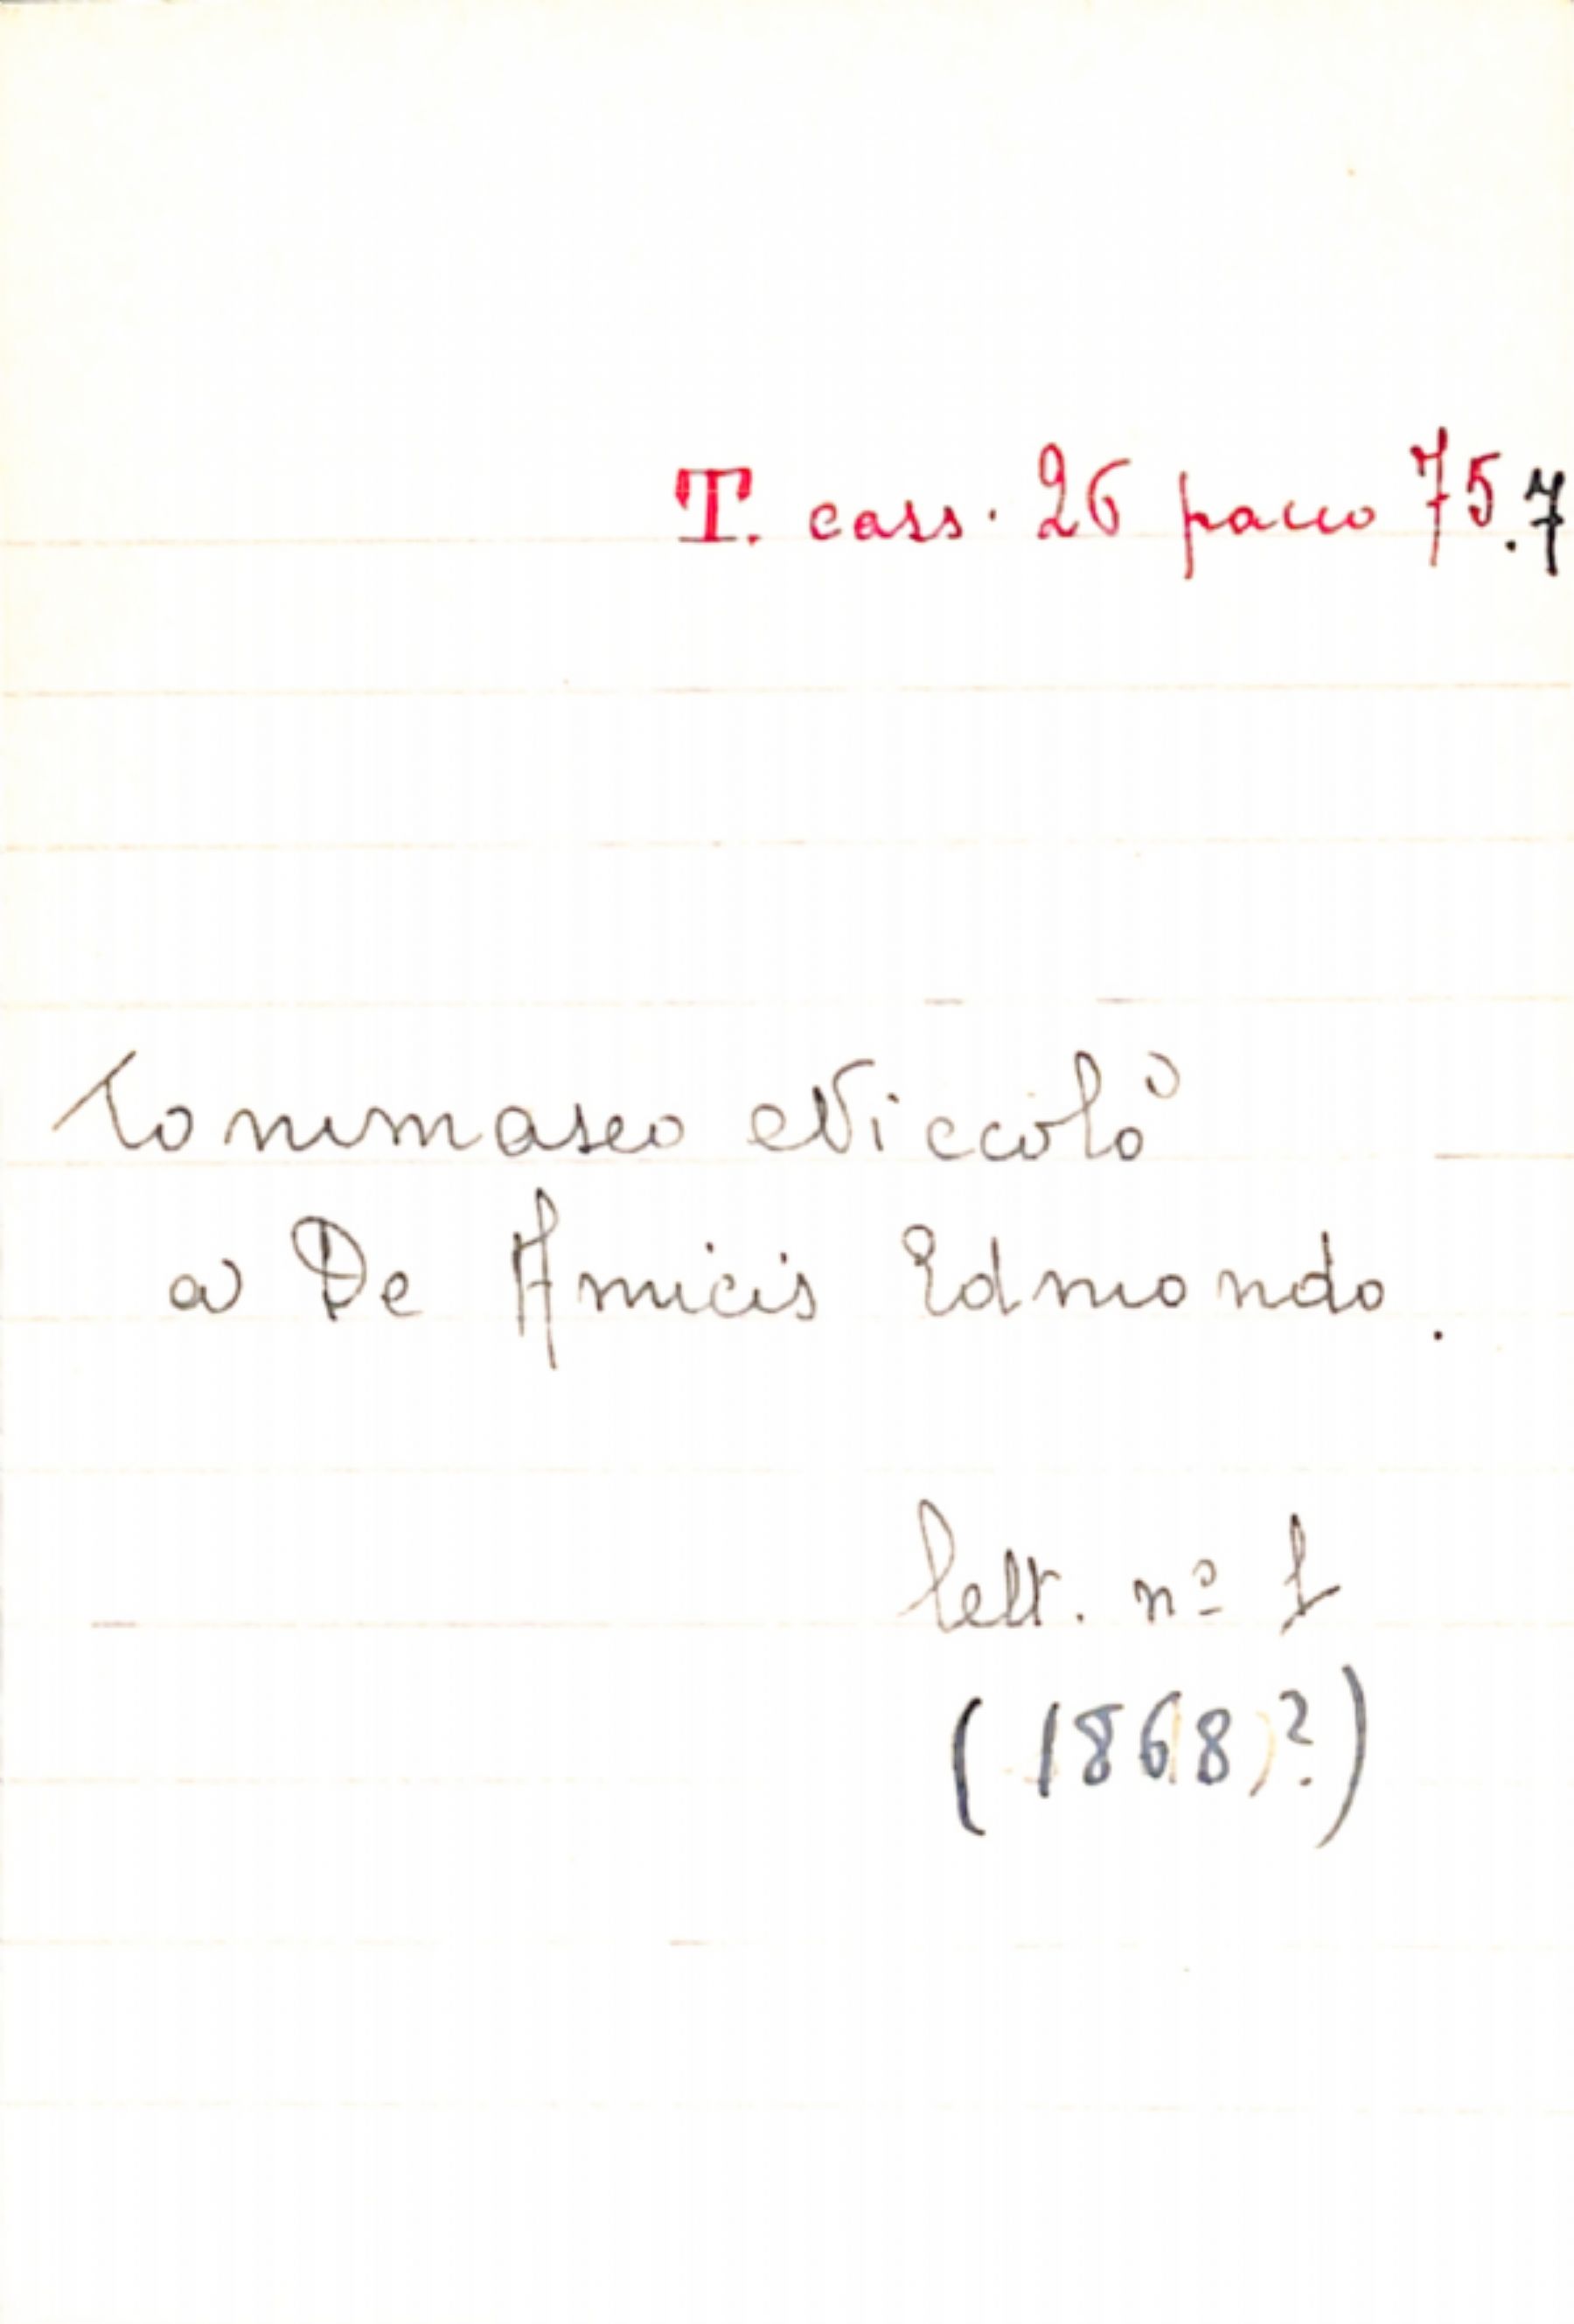 T. cass. 26 pacco 75.7
Tommaseo Niccolò
a De Amicis Edmondo.
lett. nº 1
(1868?)